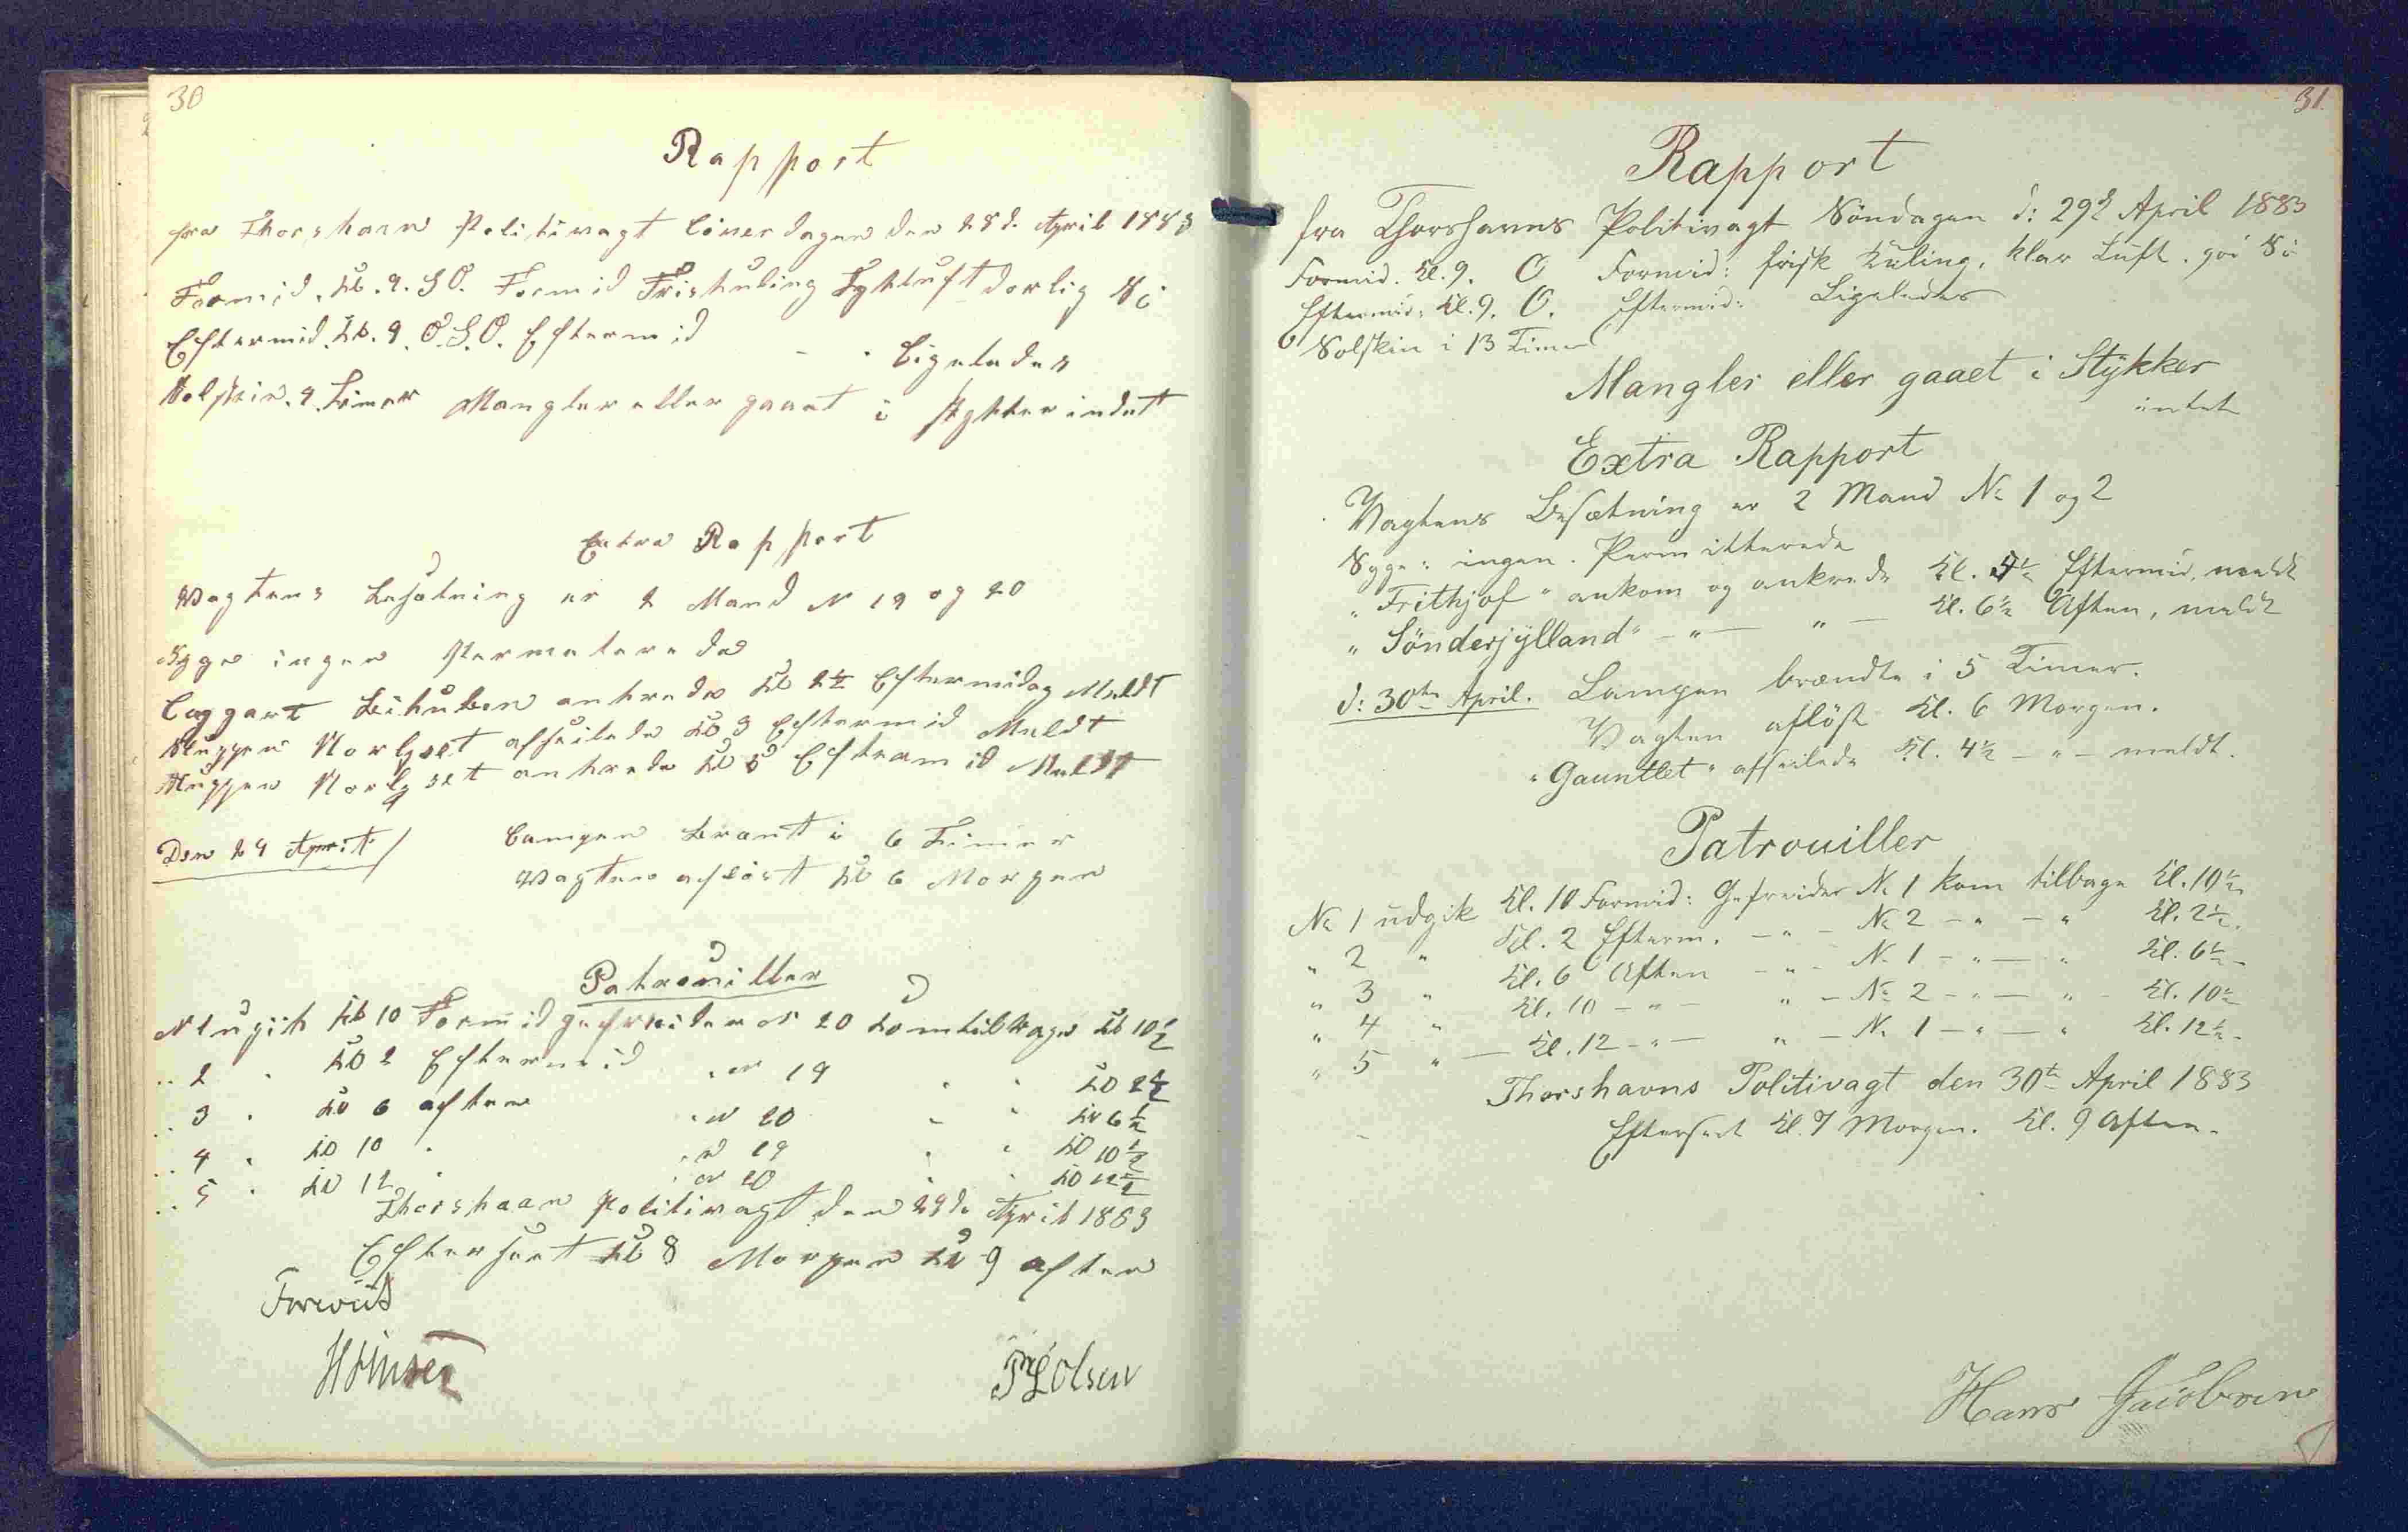 30
Rapport
fra Thorshavn Politivagt Löverdagen den 28d. April 1883
Formid. Kl. 9. SO. Formid Friskuling Tykluft dorlig Sö
Eftermid. Kl. 9. O.S.O. Eftermid - - Ligeledes
Solskin. 4 Timer Mangler eller gaaet i stykker indet
Extra Rapport
Vagtens Besætning er 2 Mand N 19 og 20
Syge ingen Permeterede
Kl 2½ Eftermidag Meldt
Sluppen Norlyset afseilede Kl 3 Eftermid Meldt
Sluppen Norlyset ankrede Kl 5 Efteramid Meldt
Den 29 April / Lampen Brant i 6 Timer
Vagten aflöst Kl 6 Morgen
Patrouiller
N 1 ugik Kl 10 Formid gefreider N 20 kom tilbage Kl 10½
.. 2 . Kl 2 Eftermid . N 19 . . Kl 2½
.. 3 . Kl 6 aften . N 20 . . Kl 6½
.. 4 . Kl 10 . . N 19 . . Kl 10½
.. 5 . Kl 12 . . N 20 . . Kl 12½
Thorshaan Politivagt den 29d. April 1883
Efterseet Kl 8 Morgen Kl 9 aften
Foreviist
Olsen
31.
Rapport
fra Thorshavns Politivagt Söndagen d: 29d April 1883
Formid. Kl. 9. O Formid: frisk Kuling, klar Luft. god Sö
Eftermid: Kl. 9. O. Eftermid: Ligeledes
Solskin i 13 Timer
Mangler eller gaaet i Stykker
intet
Extra Rapport
Vagtens Besætning er 2 Mand No 1 og 2
Syge: ingen. Permitterede
"Frithjof" ankom og ankrede Kl. 5½ Eftermid, meldt
"Sönderjylland" - " - " - Kl. 6½ Aften, meldt
d: 30te April. Lampen brændte i 5 Timer.
Vagten aflöst Kl. 6 Morgen.
"Gauntlet" afseilede Kl. 4½ - " - meldt.
Patrouiller
No 1 udgik Kl. 10 Formid: Gefreider No 1 kom tilbage Kl. 10½
" 2 " Kl. 2 Efterm. - " - No 2 - " - " Kl. 2½.
" 3 " Kl. 6 Aften - " - No 1 - " - " Kl. 6½ -
" 4 " Kl. 10 - " - " - No 2 - " - " - Kl. 10½
" 5 " - Kl. 12 - " - " - No 1 - " - " Kl. 12½ -
Thorshavns Politivagt den 30te April 1883
Efterseet Kl. 7 Morgen. Kl. 9 Aften.
Hans Jacobsen